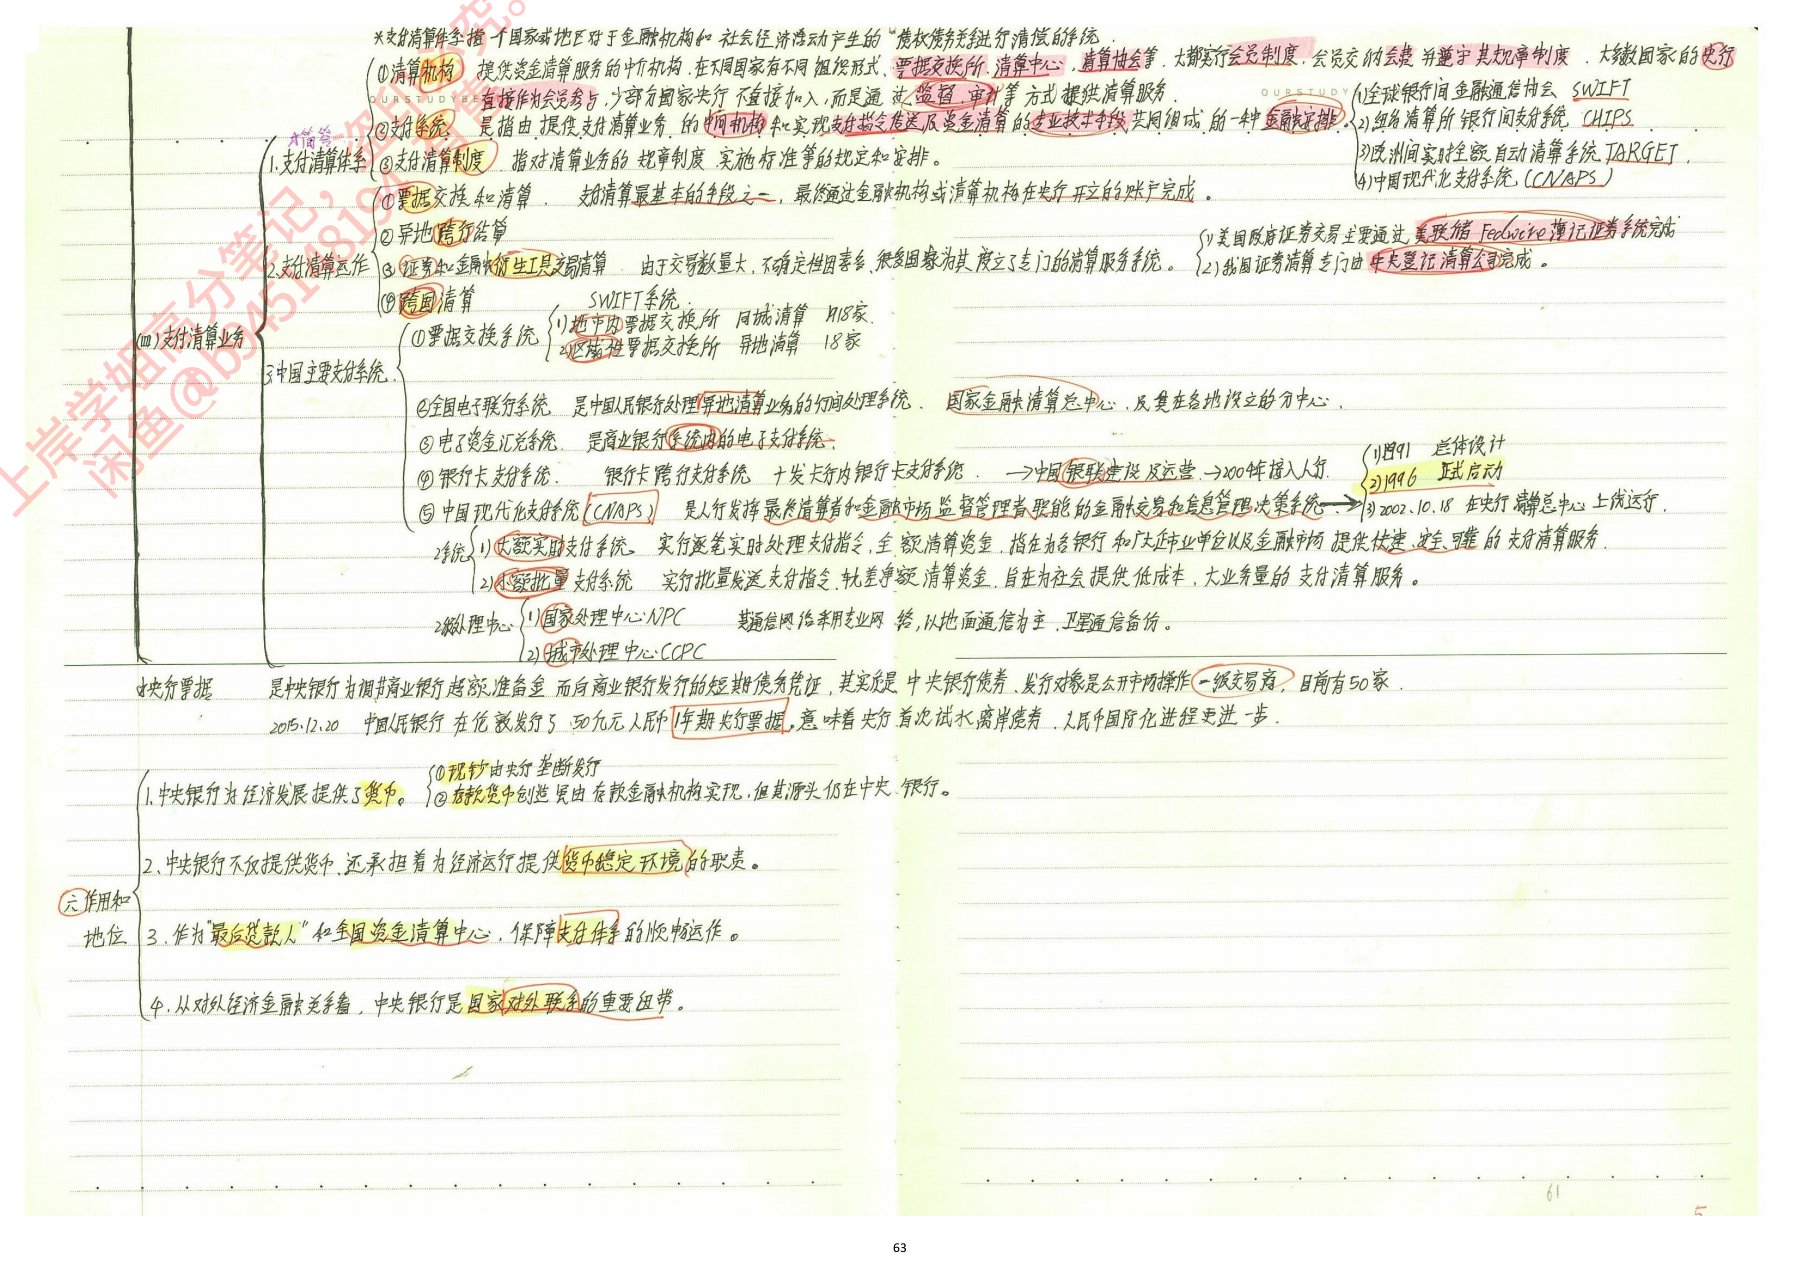 *支付清算体系指一个国家或地区对于金融机构和社会经济活动产生的"债权债务关系进行清偿的系统.
①清算机构 提供资金清算服务的中介机构,在不同国家有不同组织形式、票据交换所、清算中心,清算协会等.大都实行会员制度,会员交纳会费并遵守其规章制度.大多数国家的央行
OURSTUDYBE 直接作为会员参与,少部分国家央行不直接加入,而是通过监督、审计等方式提供清算服务.
OURSTUDY
1)全球银行间金融通信协会 SWIFT
②支付系统 是指由提供支付清算业务的中间机构和实现支付指令传送及资金清算的专业技术手段共同组成的一种金融安排
2)纽约清算所银行间支付系统 CHIPS
3)欧洲间实时全额自动清算系统 TARGET.
4)中国现代化支付系统 (CNAPS)
*简答
1.支付清算体系
③支付清算制度 指对清算业务的规章制度、实施标准等的规定和安排。
①票据交换和清算. 支付清算最基本的手段之一,最终通过金融机构或清算机构在央行开立的账户完成。
②异地跨行结算
2.支付清算运作
③证券和金融衍生工具交易清算. 由于交易数量大,不确定性因素多,很多国家为其成立了专门的清算服务系统。
1)美国政府证券交易主要通过美联储 Fedwire 簿记证券系统完成
2)我国证券清算专门由中央登记清算公司完成。
④跨国清算 SWIFT系统.
(四)支付清算业务
3.中国主要支付系统.
①票据交换系统
1)地市内票据交换所 同城清算 1918家.
2)区域性票据交换所 异地清算 18家
②全国电子联行系统 是中国人民银行处理异地清算业务的行间处理系统. 国家金融清算总中心,及其在各地设立的分中心.
③电子资金汇兑系统. 是商业银行系统内的电子支付系统.
④银行卡支付系统. 银行卡跨行支付系统 + 发卡行内银行卡支付系统. →中国银联建设及运营.→2004年接入人行.
⑤中国现代化支付系统(CNAPS) 是人行发挥最终清算者和金融市场监督管理者职能的金融交易和信息管理决策系统→
1)1991 总体设计
2)1996 正式启动
3)2002.10.18 在央行清算总中心上线运行.
2系统
1)大额实时支付系统。 实行逐笔实时处理支付指令,全额清算资金,指在为各银行和广大企事业单位以及金融市场提供快速、安全、可靠的支付清算服务.
2)小额批量支付系统 实行批量发送支付指令,轧差净额清算资金,旨在为社会提供低成本,大业务量的支付清算服务。
2级处理中心
1)国家处理中心NPC 其通信网络采用专业网络,以地面通信为主,卫星通信备份。
2)城市处理中心CCPC
*央行票据 是中央银行为调节商业银行超额准备金而向商业银行发行的短期债务凭证,其实质是中央银行债券.发行对象是公开市场操作一级交易商,目前有50家.
2015.12.20 中国人民银行在伦敦发行了50亿元人民币1年期央行票据,意味着央行首次试水离岸债券.人民币国际化进程更进一步.
六作用和地位
1.中央银行为经济发展提供了货币。
①现钞由央行垄断发行
②存款货币创造虽由存款金融机构实现,但其源头仍在中央银行。
2.中央银行不仅提供货币,还承担着为经济运行提供货币稳定环境的职责。
3.作为"最后贷款人"和全国资金清算中心,保障支付体系的顺畅运作。
4.从对外经济金融关系看,中央银行是国家对外联系的重要纽带。
61
5
63
上岸学姐高分笔记,盗印必究。
闲鱼@b9451481940